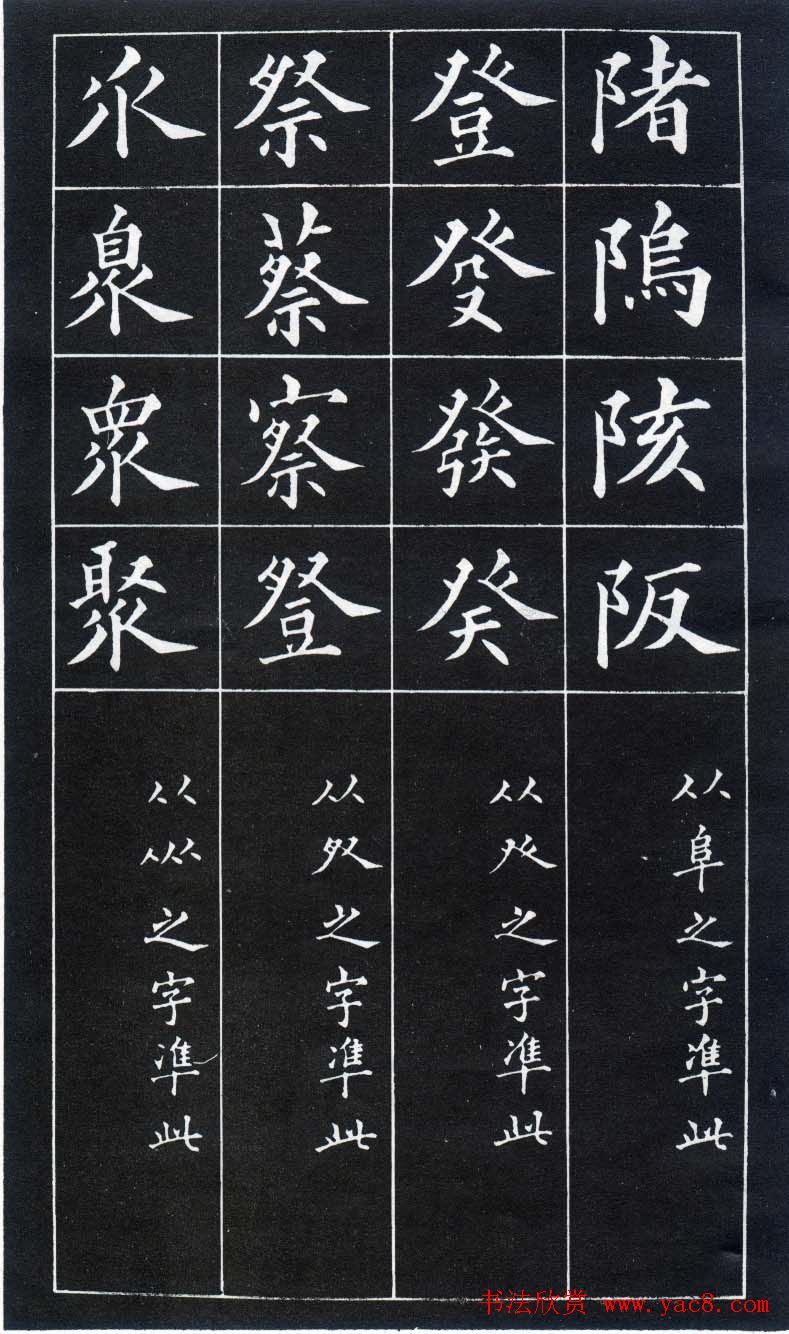 陼隖陔阪
从阜之字凖此
登癹發癸
从癶之字凖此
祭蔡察豋
从之字凖此
乑臮眾聚
从㐺之字準此
书法欣赏 www.yac8.com